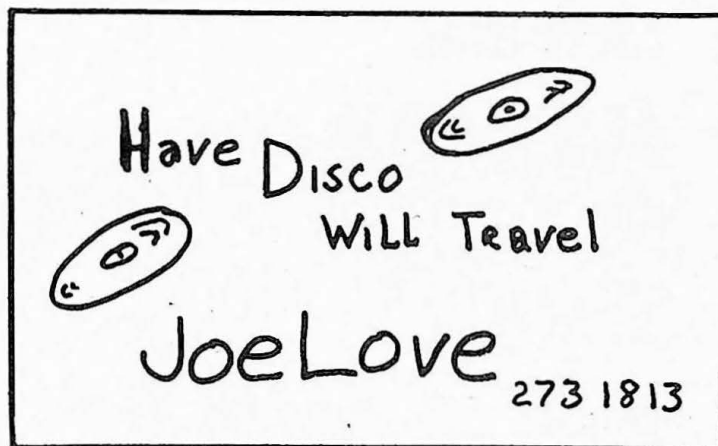 Have Disco
Will Travel
Joe Love
273 1813